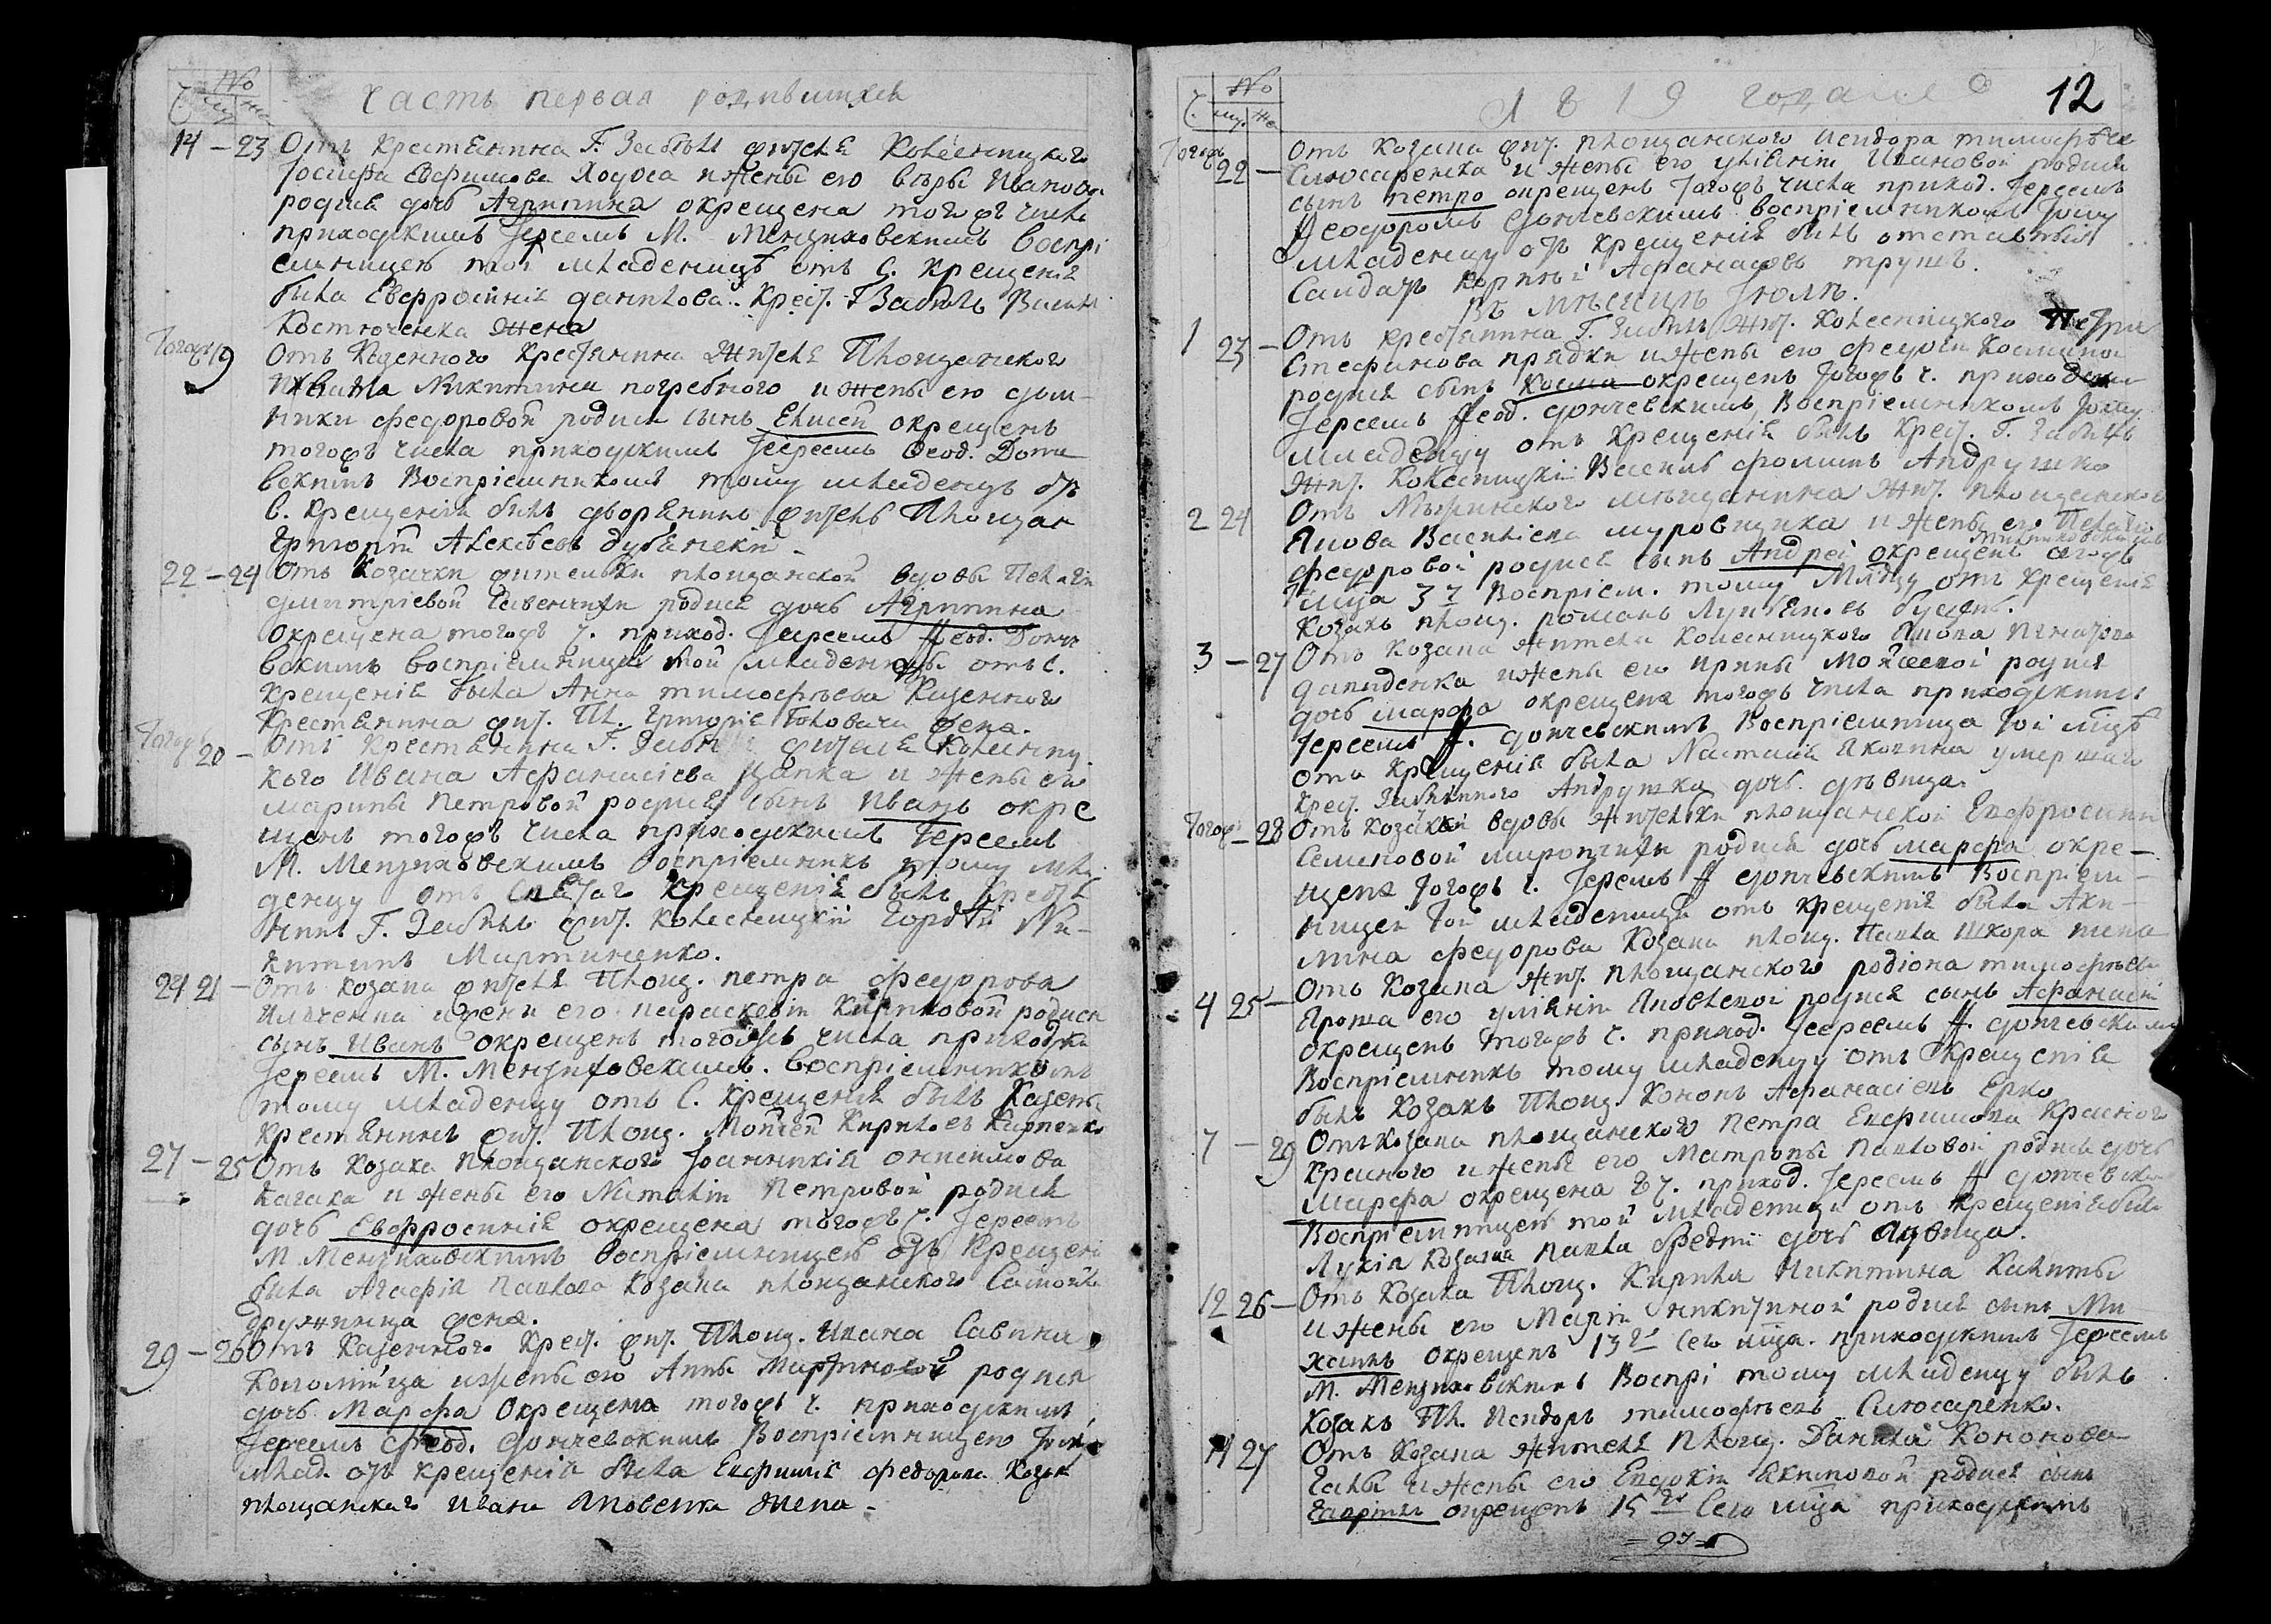 №
Часть первая родившихся
14 – 23 Отъ крестянина Г. Забѣлы жителя Колесницкаго
Іосифа Евфимова и жены его вѣры Иванов
родися дочъ Агрипина окрещена тогожъ числа
приходскимъ Іереемъ М. Мензиховскимъ воспрі
емницею той младеницѣ отъ С. Крещенія
была Евфросинія данилова Крес. Г Забѣлы
Костюченка жена
Тогожъ 19 Отъ Казенного крестянина жителя Площанского
Никитина погребного и жены его дом-
ники федоровой родися сынъ Елисей окрещенъ
тогожъ числа приходскимъ Іереемъ Феод. Донче
вскимъ Воспріемникомъ тому младенцу отъ
С. Крещенія былъ дворянинъ житель Площан
Григорій Алексѣевъ
22 – 24 Отъ Козачки жителки площанской вдовы Пелагіи
дмитріевой родися дочъ Агрипина
окрещена тогожъ ч. приход. Іереемъ Феод. Донче
вскимъ воспріемницею той младеницы отъ С.
крещенія была Анна тимофѣева Казенного
Крестянина жит. Пл. Григорія жена.
Тогожъ 20 – Отъ Крестянина Г. Забѣлы жителя Колесниц
кого Ивана Афанасіева Цапка и жены его
марины Петровой родися сынъ Иванъ окре
щенъ тогожъ числа приходскимъ Іереемъ
М. Мензиховскимъ воспріемникъ тому мла
денцу отъ Святаго Крещенія былъ Крестя
нинъ Г. Забѣлы жит. Колесницкій Гордѣй Ни-
китинъ Мартиненко.
24 21 – Отъ козака жителя Площ. петра федорова
Илченка и жени его параскевіи Кириловой родися
сынъ Иванъ окрещенъ тогожъ числа приходски
Іереемъ М. Мензиховскимъ. Воспріемникомъ
тому младенцу отъ С. крещенія былъ Казены
крестянинъ жит. Площ. Мойсей Кириловъ
27 – 25 Отъ козака площанского Іоанникія онисимова
и жены его Наталіи Петровой родися
дочъ Евфросинія окрещена тогожъ ч. Іереемъ
М Мензиховскимъ воспріемницею отъ Крещені
была Агафія Павлова козака площанского Самойла
жена.
29 – 26 Отъ Казенного Крес. жит. Площ. Ивана Савина
Коломійца и жены его Анны Мартиновой родися
дочъ Марфа окрещена тогожъ ч. приходскимъ
Іереемъ Феод. дончевскимъ Воспріемницею той
млад. отъ крещенія была Евфимія федорова Козак
площанскаго Ивана Яковенка жена –
№
1819 года
12
Тогожъ Отъ Козака жит. площанского Исидора тимофѣев
22 – Слюсаренка и жены его уліянии Ивановой родися
сынъ петро окрещенъ тогожъ числа приход. Іереемъ
Феодоромъ дончевскимъ воспріемникомъ тому
младенцу отъ крещенія былъ отставный
Салдатъ Корній Афанасовъ трушъ.
Въ Мѣсяцѣ Іюлѣ.
1 23 – Отъ крестянина Г. Забѣлы жит. Колесницкого Петра
Стефанова прядки и жены его федоси
родися сынъ Косма окрещенъ тогожъ ч. приходским
Іереемъ Феод. дончевскимъ, Воспріемникомъ тому
младенцу отъ крещенія былъ Крес. Г. Забѣлы
жит. Колесницкій Василь фоминъ Андрушко
2 24 Отъ Нѣжинского мѣщанина жит. площанского
Якова Василіева муровщика и жены его Пелагіи
федоровой родися сынъ Андрей окрещенъ сегожъ
мца 3 Воспріем. тому Млдцу отъ крещенія
Козакъ площ. романъ
3 – 27 Отъ Козака жителя Колесницкого Якова Игнатова
давиденка и жены его ирины Мойсеевой родися
дочъ марфа окрещена тогожъ числа приходскимъ
Іереемъ Ф. дончевскимъ Воспріемница той млцѣ
отъ крещенія была Настасія Яковина умершаго
крес. Забѣлиного Андрушка дочъ дѣвица.
Тогожъ – 28 Отъ козачки вдовы жителки площанской Евфросини
Семеновой родися дочъ марфа окре-
щена тогожъ ч. Іереемъ Ф дончевскимъ Воспріем-
ницею той младеницы отъ крещенія была Аки-
лина федорова Козака площ. Павла Шкора жена
4 25 – Отъ Козака жит. площанского родіона тимофѣева
Яроша его уліянии Яковлевой родися сынъ Афанасій
окрещенъ тогожъ ч. приход. Іереемъ Ф. дончевским
Воспріемникъ тому младенцу отъ Крещенія
былъ Козакъ Площ. Кононъ Афанасіевъ Ерко
7 – 29 Отъ Козака площанского Петра Евфимова Красного
Красного и жены его Матроны Павловой родися дочъ
Марфа окрещена 8 ч. приход. Іереемъ Ф дончевски
Воспріемницею той младеници отъ крещенія была
Лукія Козака Павла дочъ дѣвица.
12 26 – Отъ Козака Площ. Кирила Никитина Калиты
и жены его Маріи никитиной родися сынъ Ми
хаилъ окрещенъ 13го сего мца приходскимъ Іереемъ
М. Мензиховскимъ Воспрі тому младенцу былъ
Козакъ Пл. Исидоръ тимофѣевъ Слюсаренко.
14 27 Отъ Козака жителя площ. Данила Кононова
Галы и жены его Евдокіи Якимовой родися сынъ
Гаврилъ окрещенъ 15го Сего мца приходскимъ